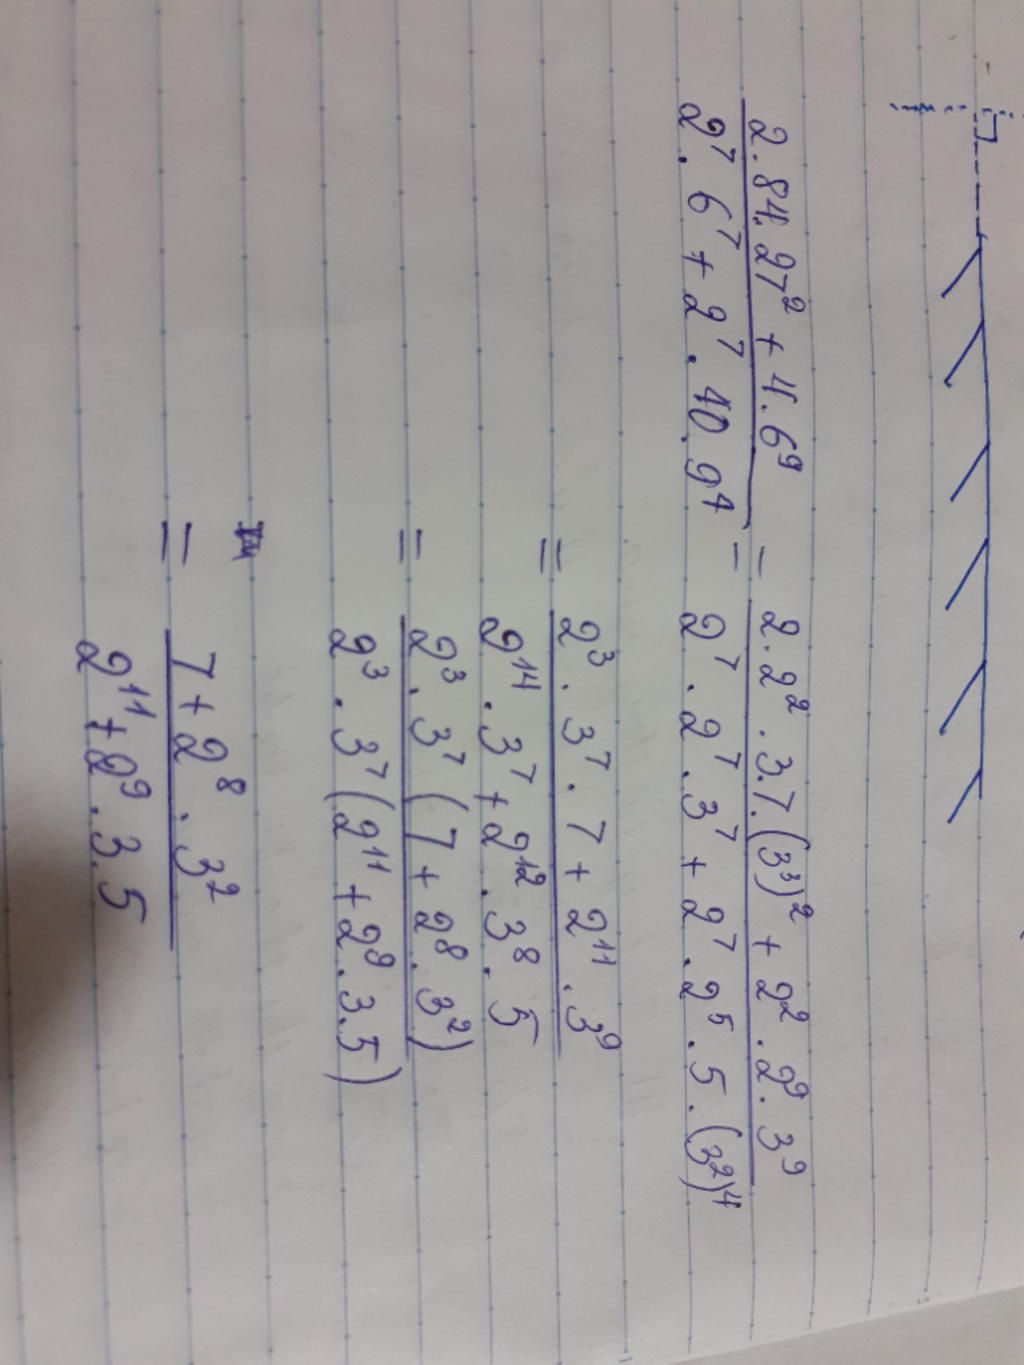 2.84.27² + 4.6⁹ = 2.2².3.7.(3³)² + 2².2⁹.3⁹
2⁷.6⁷ + 2⁷.40.9⁴ 2⁷.2⁷.3⁷ + 2⁷.2⁵.5.(3²)⁴
= 2³.3⁷.7 + 2¹¹.3⁹
2¹⁴.3⁷ + 2¹².3⁸.5
= 2³.3⁷(7 + 2⁸.3²)
2³.3⁷(2¹¹ + 2⁹.3.5)
= 7 + 2⁸.3²
2¹¹ + 2⁹.3.5